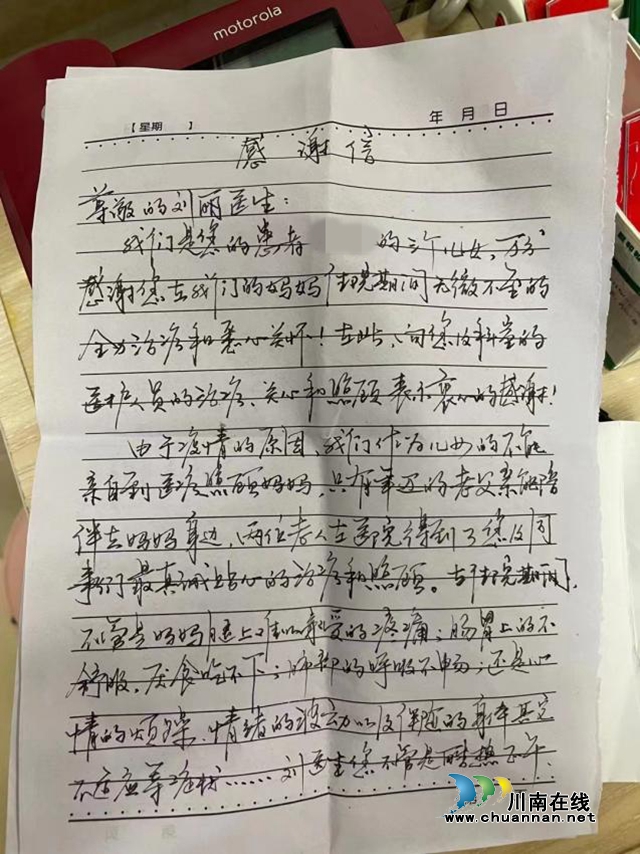 motorola
【星期　】　年 月 日
感谢信
尊敬的刘丽医生：
我们是您的患者　的三个儿女，万分
感谢您在我们的妈妈住院期间无微不至的
全力治疗和悉心关怀！在此，向您及科室的
医护人员的治疗、关心和照顾表示衷心的感谢！
由于疫情的原因，我们作为儿女的不能
亲自到医院照顾妈妈，只有年迈的老父亲能陪
伴在妈妈身边，两位老人在医院得到了您及同
事们最真诚贴心的治疗和照顾。在住院期间，
不管是妈妈腿上难以忍受的疼痛；肠胃上的不
舒服，饮食吃不下；肺部的呼吸不畅；还是心
情的烦躁、情绪的波动以及伴随的身体其它
不适应等症状……刘医生您不管是酷热正午、
川南在线
www.chuannan.net